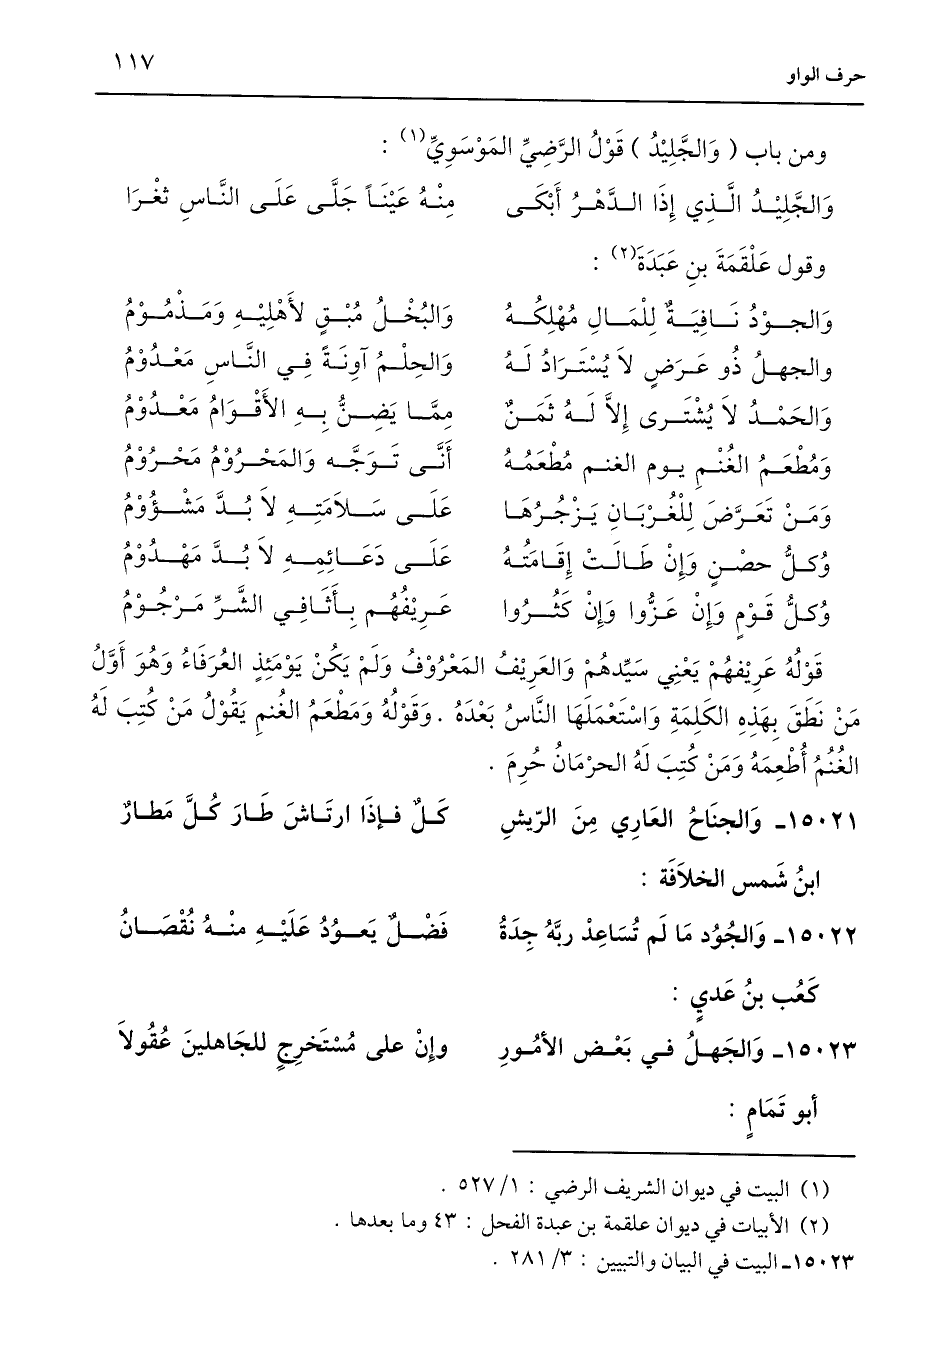 حرف الواو ١١٧
ومن باب ( وَالجَّلِيْدُ ) قَوْلُ الرَّضِيِّ المَوْسَوِيِّ(١) :
وَالجَّلِيْدُ الَّذِي إِذَا الدَّهْرُ أَبْكَى مِنْهُ عَيْنَاً جَلَّى عَلَى النَّاسِ ثغْرَا
وقول عَلْقَمَةَ بنِ عَبَدَةَ(٢) :
وَالجوْدُ نَافِيَةٌ لِلْمَالِ مُهْلِكُهُ وَالبُخْلُ مُبْقٍ لأَهْلِيْهِ وَمَذْمُوْمُ
والجهلُ ذُو عَرَضٍ لاَ يُسْتَرَادُ لَهُ وَالحِلْمُ آوِنَةً فِي النَّاسِ مَعْدُوْمُ
وَالحَمْدُ لاَ يُشْتَرى إِلاَّ لَهُ ثَمَنٌ مِمَّا يَضنُّ بِهِ الأَقْوَامُ مَعْدُوْمُ
وَمُطْعَمُ الغُنْمِ يوم الغنم مُطْعَمُهُ أَنَّى تَوَجَّه وَالمَحْرُوْمُ مَحْرُوْمُ
وَمَنْ تَعَرَّضَ لِلْغُرْبَانِ يَزْجُرُهَا عَلَى سَلاَمَتِهِ لاَ بُدَّ مَشْؤُوْمُ
وُكلُّ حصْنٍ وَإِنْ طَالَتْ إِقَامَتُهُ عَلَى دَعَائِمِهِ لاَ بُدَّ مَهْدُوْمُ
وُكلُّ قَوْمٍ وَإِنْ عَزُّوا وَإِنْ كَثُرُوا عَرِيْفُهُم بِأَثَافِي الشَّرِّ مَرْجُوْمُ
قَوْلُهُ عَرِيْفهُمْ يَعْنِي سَيِّدهُمْ وَالعَرِيْفُ المَعْرُوْفُ وَلَمْ يَكُنْ يَوْمَئِذٍ العُرَفَاءُ وَهُوَ أَوَّلُ
مَنْ نَطَقَ بِهَذِهِ الكَلِمَةِ وَاسْتَعْمَلَهَا النَّاسُ بَعْدَهُ . وَقَوْلُهُ وَمَطْعَمُ الغُنمِ يَقُوْلُ مَنْ كُتِبَ لَهُ
الغُنُمُ أُطْعِمَهُ وَمَنْ كُتِبَ لَهُ الحرْمَانُ حُرِمَ .
١٥٠٢١ـ وَالجنَاحُ العَارِي مِنَ الرّيشِ كَلٌ فإِذَا ارتَاشَ طَارَ كُلَّ مَطارْ
ابنُ شَمسِ الخلاَفَة :
١٥٠٢٢ـ وَالجُوُد مَا لَم تُسَاعِدْ ربَّهُ جِدَةُ فَضْلٌ يَعوُدُ عَلَيْهِ منْهُ نُقْصَانُ
كَعُب بنُ عَديٍ :
١٥٠٢٣ـ وَالجَهلُ في بَعْض الأمُورِ وإِنْ على مُسْتَخرِجٍ للجَاهلينَ عُقُولاَ
أبو تَمَامٍ :
(١) البيت في ديوان الشريف الرضي : ١/ ٥٢٧ .
(٢) الأبيات في ديوان علقمة بن عبدة الفحل : ٤٣ وما بعدها .
١٥٠٢٣ـ البيت في البيان والتبيين : ٣/ ٢٨١ .